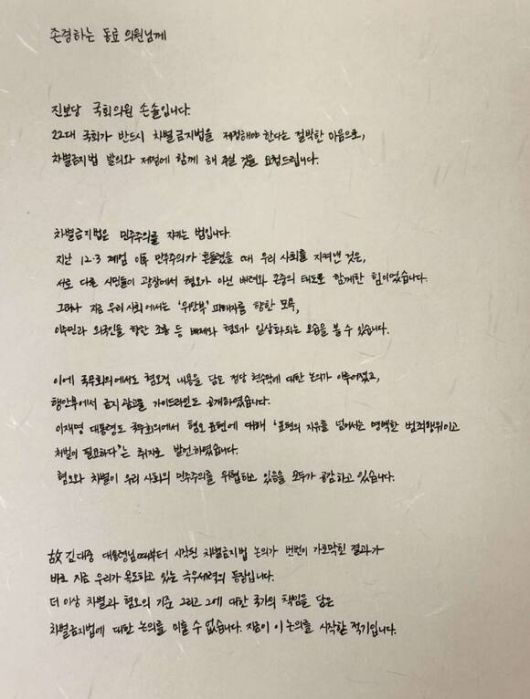 존경하는 동료 의원님께
진보당 국회의원 손솔입니다.
22대 국회가 반드시 차별금지법을 제정해야 한다는 절박한 마음으로,
차별금지법 발의와 제정에 함께 해 주실 것을 요청드립니다.
차별금지법은 민주주의를 지키는 법입니다.
지난 12·3 계엄 이후 민주주의가 흔들렸을 때 우리 사회를 지켜낸 것은,
서로 다른 시민들이 광장에서 혐오가 아닌 배려와 존중의 태도로 함께한 힘이었습니다.
그러나 지금 우리 사회에서는 '위안부' 피해자를 향한 모욕,
이주민과 외국인을 향한 조롱 등 배제와 혐오가 일상화되는 모습을 볼 수 있습니다.
이에 국무회의에서도 혐오적 내용을 담은 정당 현수막에 대한 논의가 이루어졌고,
행안부에서 금지광고물 가이드라인도 공개하였습니다.
이재명 대통령도 국무회의에서 혐오 표현에 대해 "표현의 자유를 넘어서는 명백한 범죄행위이고
처벌이 필요하다"는 취지로 발언하였습니다.
혐오와 차별이 우리 사회의 민주주의를 위협하고 있음을 모두가 공감하고 있습니다.
故 김대중 대통령님때부터 시작된 차별금지법 논의가 번번이 가로막힌 결과가
바로 지금 우리가 목도하고 있는 극우세력의 등장입니다.
더 이상 차별과 혐오의 기준 그리고 그에 대한 국가의 책임을 담은
차별금지법에 대한 논의를 미룰 수 없습니다. 지금이 이 논의를 시작할 적기입니다.